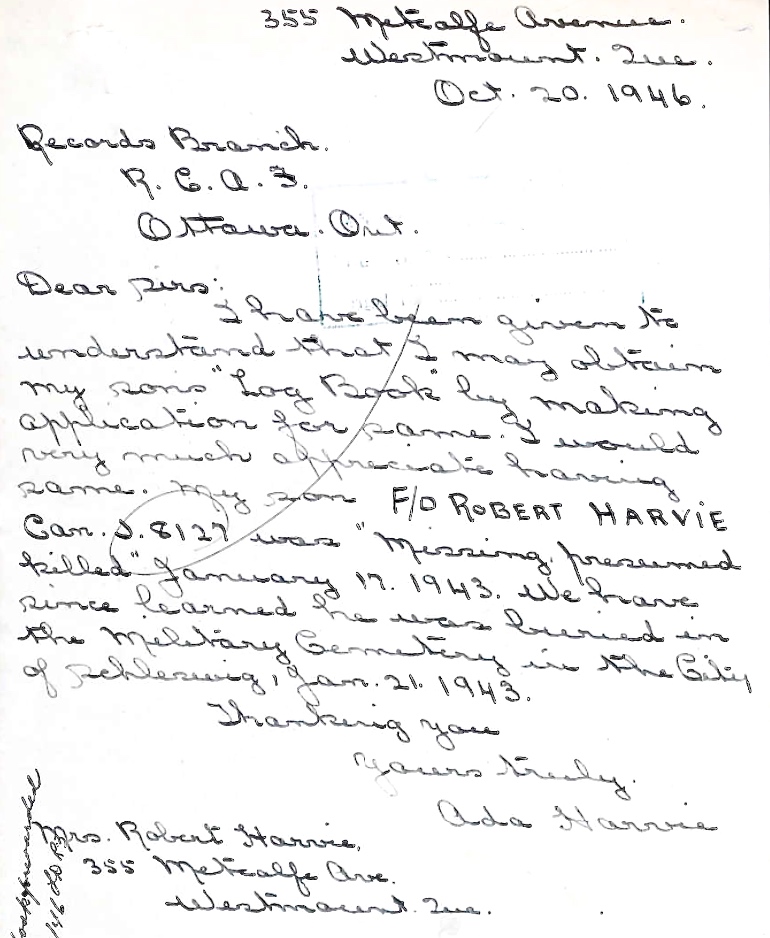 355 Metcalfe Avenue.
Westmount. Que.
Oct. 20. 1946.
Records Branch.
R. C. A. F.
Ottawa. Ont.
Dear Sirs:
I have been given to
understand that I may obtain
my sons "Log Book" by making
application for same. I would
very much appreciate having
same. My son F/O ROBERT HARVIE
Can. J. 8127 was "Missing, presumed
killed" January 17. 1943. We have
since learned he was buried in
the Military Cemetery in the City
of Schleswig, Jan. 21. 1943.
Thanking you
Yours truly.
Ada Harvie
Mrs. Robert Harvie,
355 Metcalfe Ave.
Westmount. Que.